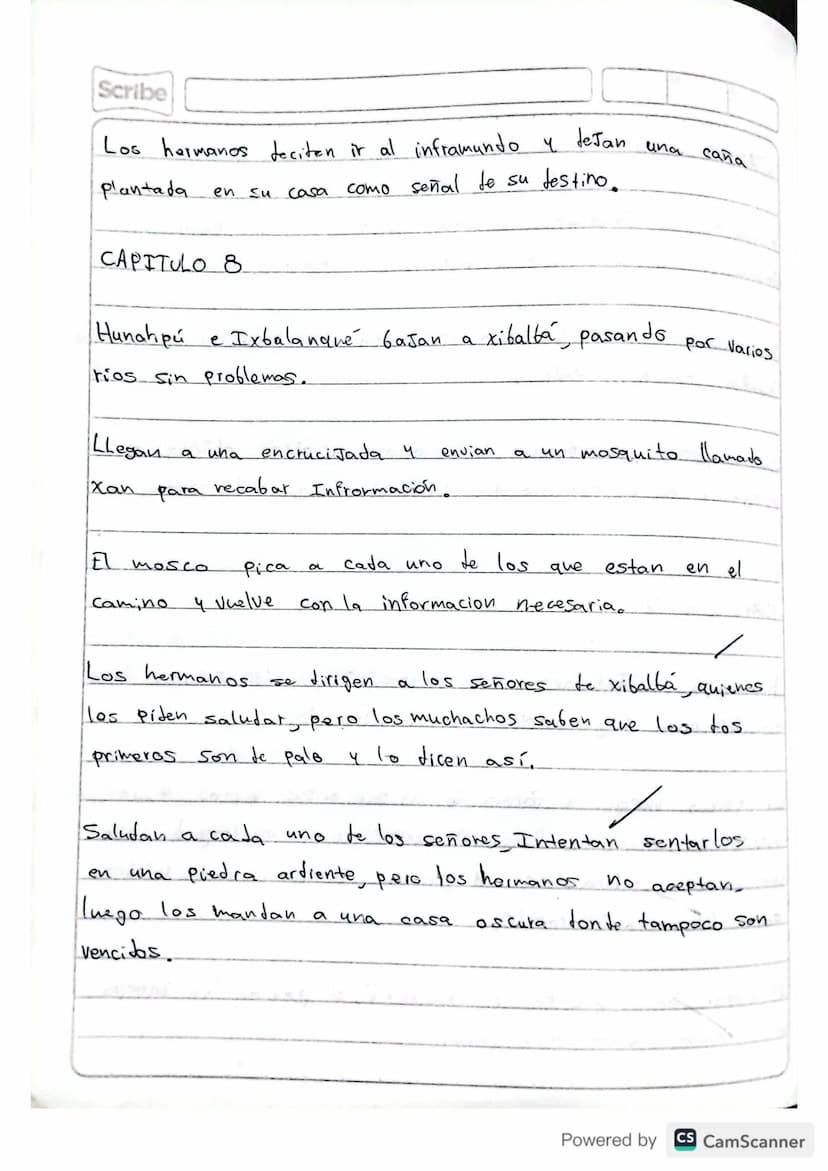 Scribe
Los hermanos deciden ir al inframundo y dejan una caña
plantada en su casa como señal de su destino.
CAPITULO 8
Hunahpú e Ixbalanqué bajan a xibalbá, pasando por varios
ríos sin problemas.
Llegan a una encrucijada y envian a un mosquito llamado
Xan para recabar Infrormación.
El mosco pica a cada uno de los que estan en el
camino y vuelve con la informacion necesaria.
Los hermanos se dirigen a los señores de xibalbá, quienes
los piden saludar, pero los muchachos saben que los dos
primeros son de palo y lo dicen así.
Saludan a cada uno de los señores, Intentan sentarlos
en una piedra ardiente, pero los hermanos no aceptan.
luego los mandan a una casa oscura donde tampoco son
vencidos.
Powered by CS CamScanner